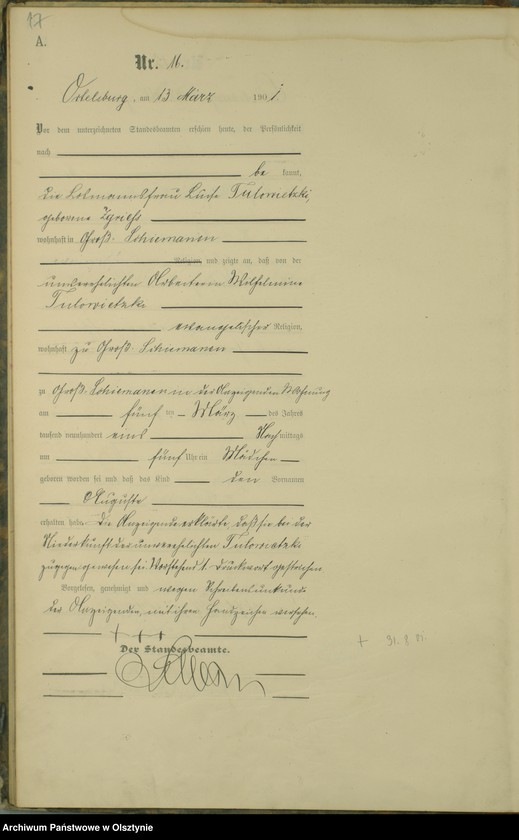 17
A.
Nr. 16.
Ortelsburg, am 13. März 1901
Vor dem unterzeichneten Standesbeamten erschien heute, der Persönlichkeit
nach
be kannt,
die Losmannsfrau Luise Tulowietzki,
geborene
wohnhaft in Groß-Schiemanen
Religion, und zeigte an, daß von der
unverehelichten Arbeiterin Wilhelmine
Tulowietzki
evangelischer Religion,
wohnhaft zu Groß-Schiemanen
zu Groß-Schiemanen in der Anzeigenden Wohnung
am fünf ten März des Jahres
tausend neunhundert eins Nach mittags
um fünf Uhr ein Mädchen
geboren worden sei und daß das Kind den Vornamen
Auguste
erhalten habe. Die Anzeigende erklärte, daß sie bei der
Niederkunft der unverehelichten Tulowietzki
zugegen gewesen sei. Vorstehend 1. Druckwort gestrichen
Vorgelesen, genehmigt und wegen Schreibensunkunde
der Anzeigenden, mit ihrem Handzeichen versehen.
+ + +
Der Standesbeamte.
Archiwum Państwowe w Olsztynie